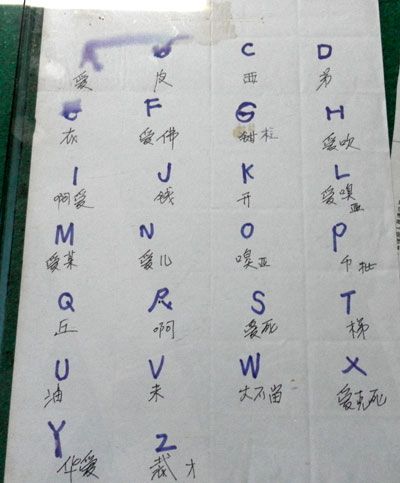 C D
爱 皮 西 弟
F G H
衣 爱佛 甜柱 爱吹
I J K L
啊爱 钱 开 爱嗅亚
M N O P
爱某 爱儿 嗅亚 币批
Q R S T
丘 啊 爱死 梯
U V W X
油 未 大不留 爱克死
Y Z
华爱 裁才